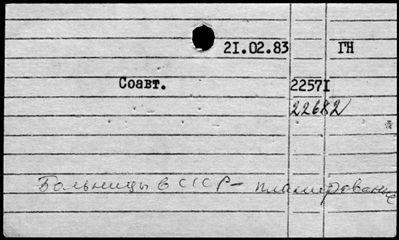 21.02.83 ГН
Соавт. 22571
22682
Больницы в СССР - планирование